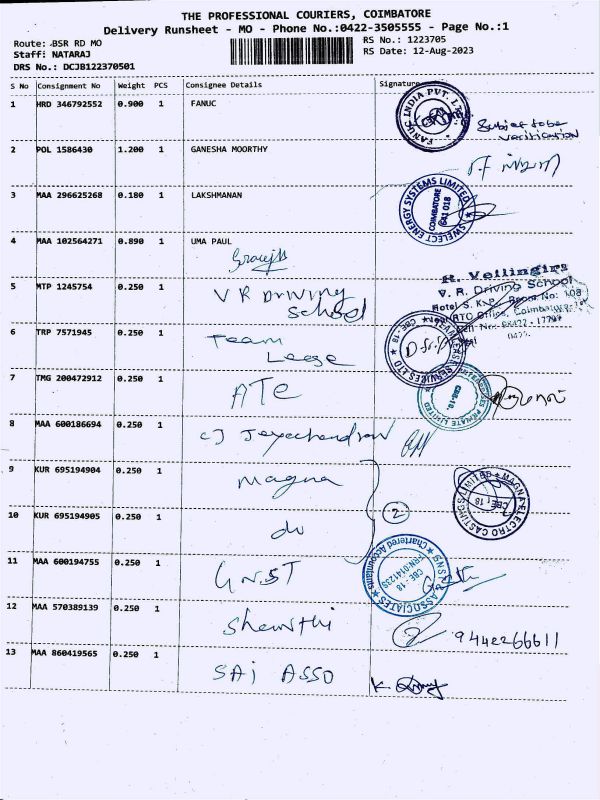 THE PROFESSIONAL COURIERS, COIMBATORE
Delivery Runsheet - MO - Phone No.:0422-3505555 - Page No.:1
Route: BSR RD MO
RS No.: 1223705
Staff: NATARAJ
RS Date: 12-Aug-2023
DRS No.: DCJB122370501
S No Consignment No Weight PCS Consignee Details Signature
1 HRD 346792552 0.900 1 FANUC
FANUC INDIA PVT. LTD.
Subject to be verification
2 POL 1586430 1.200 1 GANESHA MOORTHY
3 MAA 296625268 0.180 1 LAKSHMANAN
SWELECT ENERGY SYSTEMS LIMITED
COIMBATORE
641 018
4 MAA 102564271 0.890 1 UMA PAUL
5 MTP 1245754 0.250 1 V R Driving School
R. Vellingiri
V. R. Driving School
6 TRP 7571945 0.250 1 Team Lease
TEAM LEASE SERVICES LTD
CBE - 18
7 TMG 200472912 0.250 1 ATC
PRIVATE LIMITED
CBE-18.
8 MAA 600186694 0.250 1 CJ Jeyachandran
9 KUR 695194904 0.250 1 Magna
MAGNA ELECTRO CASTINGS LIMITED
CBE - 18
10 KUR 695194905 0.250 1 do
2
11 MAA 600194755 0.250 1 GNST
ASSOCIATES
Chartered Accountants
CBE - 18
FRN-014123S
12 MAA 570389139 0.250 1 Shewthi
9442266611
13 MAA 860419565 0.250 1 SAi ASSO